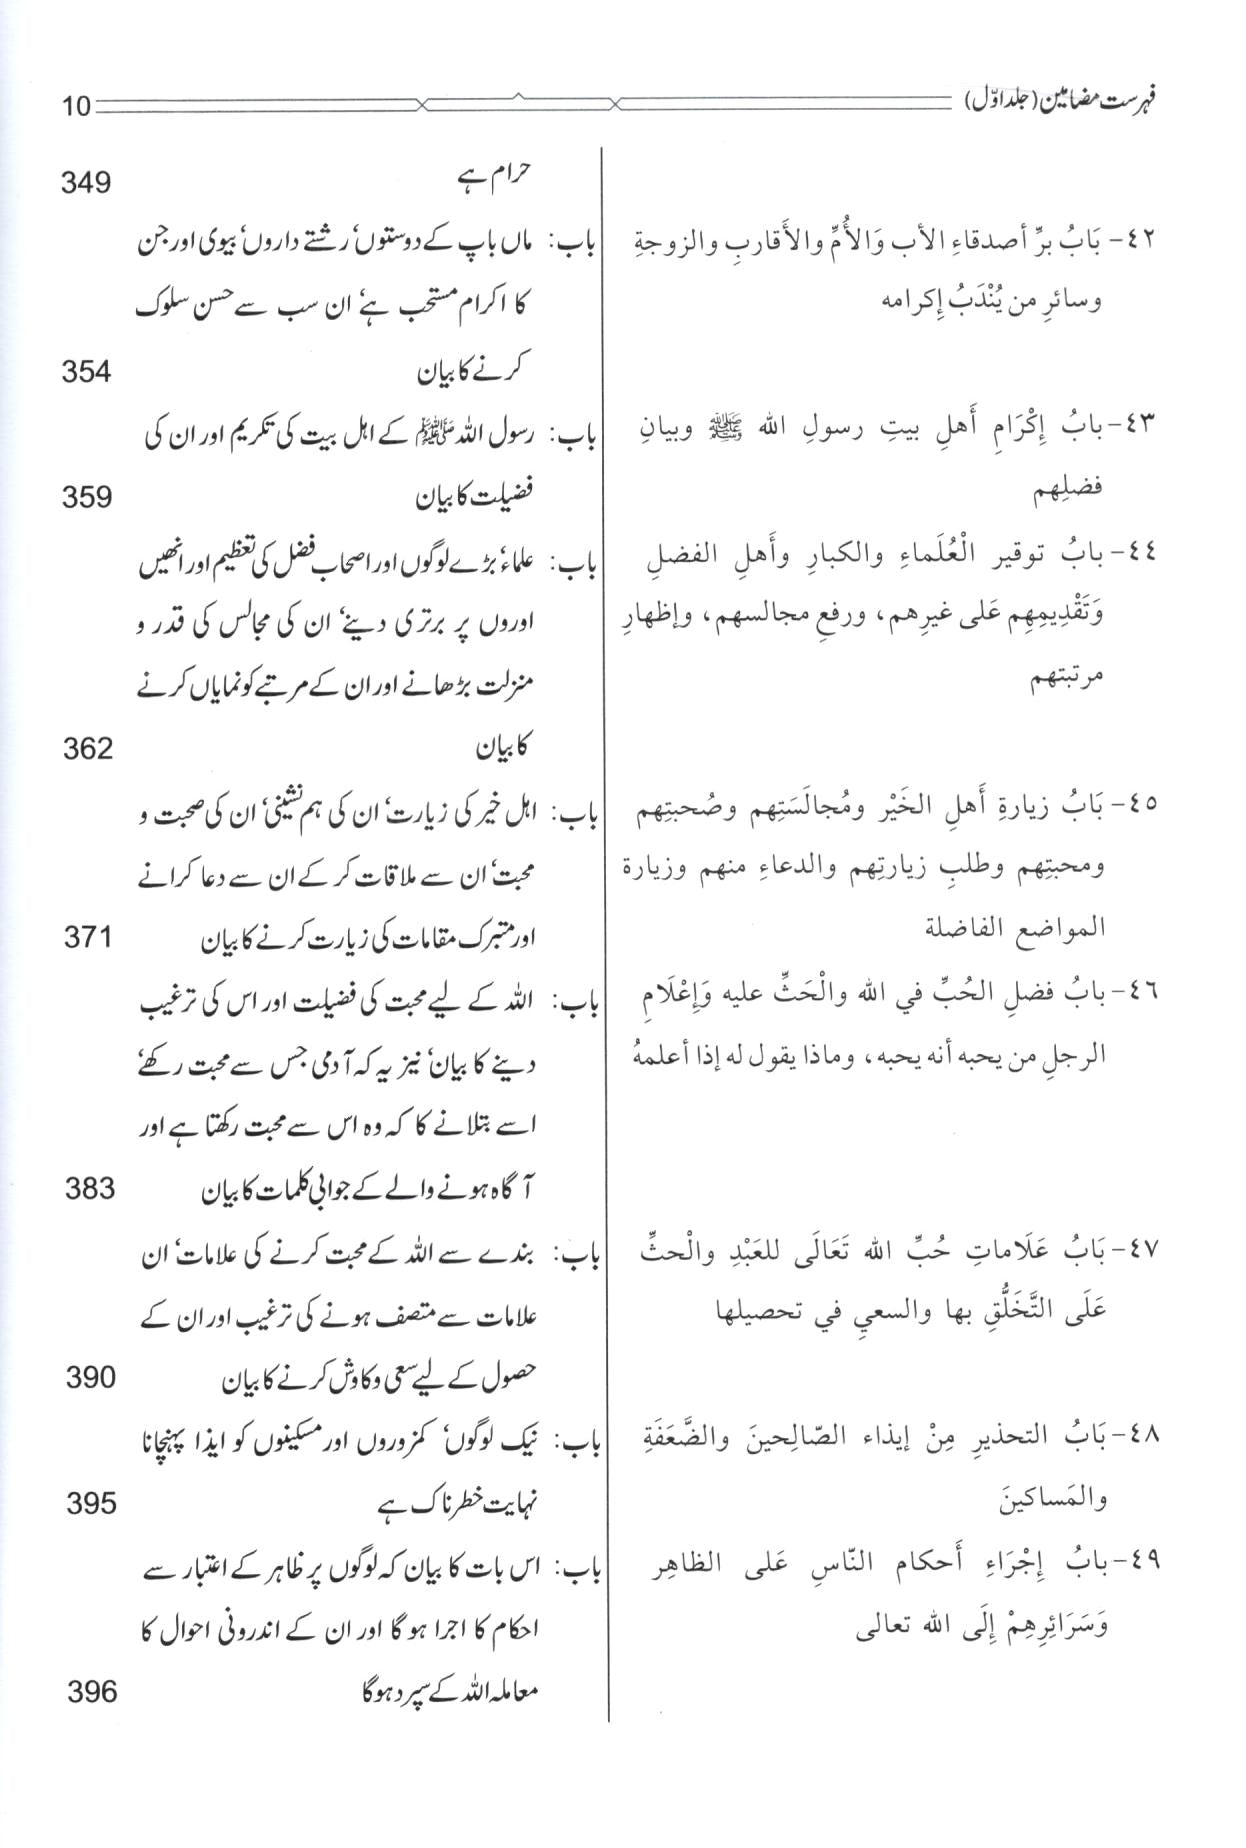 فہرست مضامین (جلد اوّل)
10
حرام ہے
349
٤٢- بَابُ برِّ أصدقاءِ الأب وَالأُمِّ والأَقاربِ والزوجةِ
وسائرِ من يُنْدَبُ إِكرامه
باب: ماں باپ کے دوستوں، رشتے داروں، بیوی اور جن
کا اکرام مستحب ہے، ان سب سے حسن سلوک
کرنے کا بیان
354
٤٣- بابُ إِكْرَامِ أَهلِ بيتِ رسولِ الله ﷺ وبيانِ
فضلِهم
باب: رسول اللہ ﷺ کے اہل بیت کی تکریم اور ان کی
فضیلت کا بیان
359
٤٤- بابُ توقير الْعُلَماءِ والكبارِ وأَهلِ الفضلِ
وَتَقْدِيمِهِم عَلى غيرِهم، ورفعِ مجالسهم، وإظهارِ
مرتبتهم
باب: علماء، بڑے لوگوں اور اصحاب فضل کی تعظیم اور انھیں
اوروں پر برتری دینے، ان کی مجالس کی قدر و
منزلت بڑھانے اور ان کے مرتبے کو نمایاں کرنے
کا بیان
362
٤٥- بَابُ زيارةِ أَهلِ الخَيْر ومُجالَسَتِهم وصُحبتِهم
ومحبتِهم وطلبِ زيارتِهم والدعاءِ منهم وزيارة
المواضع الفاضلة
باب: اہل خیر کی زیارت، ان کی ہم نشینی، ان کی صحبت و
محبت، ان سے ملاقات کر کے ان سے دعا کرانے
اور متبرک مقامات کی زیارت کرنے کا بیان
371
٤٦- بابُ فضلِ الحُبِّ في الله والْحَثِّ عليه وَإِعْلَامِ
الرجلِ من يحبه أنه يحبه، وماذا يقول له إذا أعلمهُ
باب: اللہ کے لیے محبت کی فضیلت اور اس کی ترغیب
دینے کا بیان، نیز یہ کہ آدمی جس سے محبت رکھے،
اسے بتلانے کا کہ وہ اس سے محبت رکھتا ہے اور
آگاہ ہونے والے کے جوابی کلمات کا بیان
383
٤٧- بَابُ عَلَاماتِ حُبِّ الله تَعَالَى للعَبْدِ والْحثِّ
عَلَى التَّخَلُّقِ بها والسعيِ في تحصيلها
باب: بندے سے اللہ کے محبت کرنے کی علامات، ان
علامات سے متصف ہونے کی ترغیب اور ان کے
حصول کے لیے سعی و کاوش کرنے کا بیان
390
٤٨- بَابُ التحذيرِ مِنْ إيذاء الصّالِحينَ والضَّعَفَةِ
والمَساكينَ
باب: نیک لوگوں، کمزوروں اور مسکینوں کو ایذا پہنچانا
نہایت خطرناک ہے
395
٤٩- بابُ إِجْرَاءِ أَحكام النّاسِ عَلى الظاهِر
وَسَرَائِرِهِمْ إِلَى الله تعالى
باب: اس بات کا بیان کہ لوگوں پر ظاہر کے اعتبار سے
احکام کا اجرا ہو گا اور ان کے اندرونی احوال کا
معاملہ اللہ کے سپرد ہوگا
396